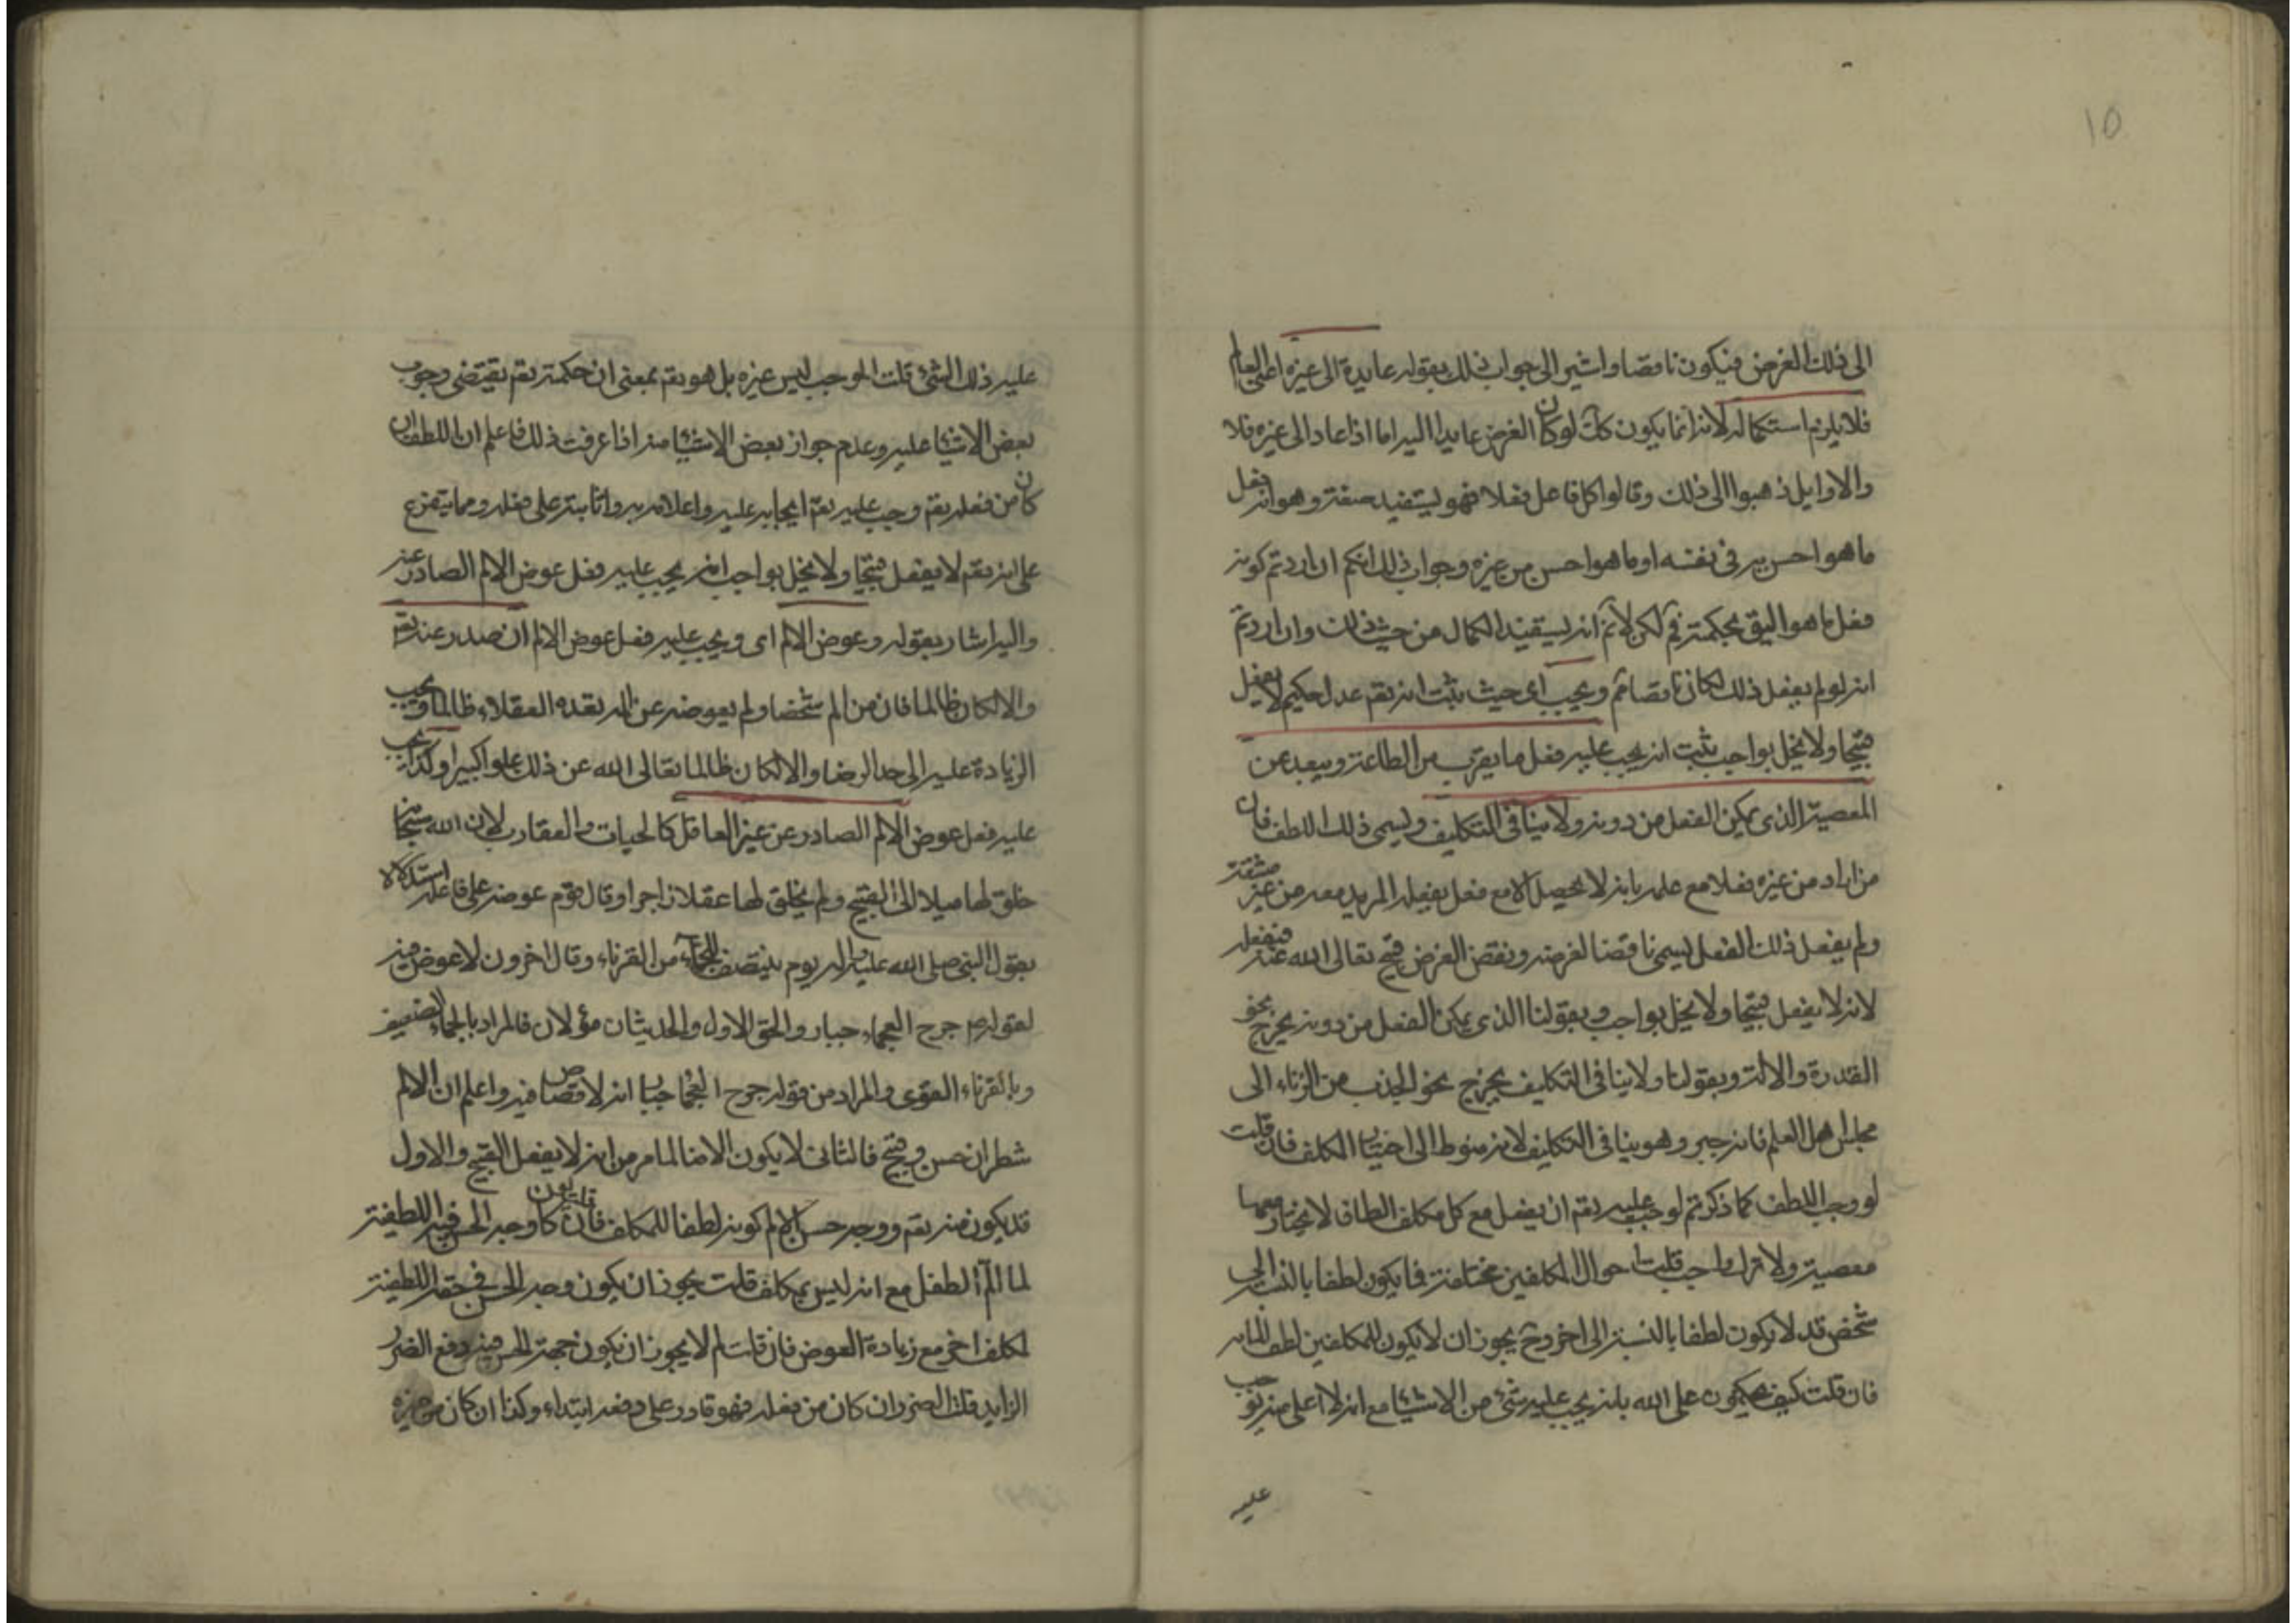 ١٥
الى ذلك الغرض فيكون ناقصا واشير الى جواب ذلك بقوله عايدة الى غيره اعنى العالم
فلا يلزم استكماله لانه انما يكون كك لو كان الغرض عايدا اليه اما اذا عاد الى غيره فلا
والاوايل ذهبوا الى ذلك وقالوا كل فاعل فعلا فهو يستفيد صفة وهو انه فعل
ما هو احسن به فى نفسه او ما هو احسن من غيره وجواب ذلك انكم ان اردتم كونه
فعل ما هو اليق بحكمته فم لكن لا نم انه يستفيد الكمال من حيث ذلك وان اردتم
انه لو لم يفعل ذلك لكان ناقصا فم ويجب اى حيث ثبت انه يقم عدل حكيم لا يفعل
قبيحا ولا يخل بواجب ثبت انه يجب عليه فعل ما يقرب من الطاعة ويبعد عن
المعصية الذى يمكن الفعل من دونه ولا ينافى التكليف ويسمى ذلك اللطف فان
من اراد من غيره فعلا مع علمه بانه لا يحصل الا مع فعل يفعله المريد معه من غير مشقة
ولم يفعل ذلك الفعل يسمى ناقضا لغرضه ونقض الغرض قبيح تعالى الله عنه فيفعله
لانه لا يفعل قبيحا ولا يخل بواجب وبقولنا الذى يمكن الفعل من دونه يخرج نحو
القدرة والالة وبقولنا ولا ينافى التكليف يخرج نحو الجذب من الزناء الى
مجلس اهل العلم فانه جبر وهو ينافى التكليف لانه منوط الى اختيار المكلف فان قلت
لو وجب اللطف كما ذكرتم لوجب عليه يقم ان يفعل مع كل مكلف الطاف لا يختار معها
معصية ولا ترك واجب قلت احوال المكلفين مختلفة فما يكون لطفا بالنسبة الى
شخص قد لا يكون لطفا بالنسبة الى اخر وح يجوز ان لا يكون للمكلفين لطف
فان قلت كيف يحكمون على الله بانه يجب عليه شئ من الاشيا مع انه لا اعلى منه يوجب
عليه
عليه ذلك الشئ قلت الموجب ليس غيره بل هو يقم بمعنى ان حكمته يقم يقتضى وجوب
بعض الاشيا عليه وعدم جواز بعض الاشيا منه اذا عرفت ذلك فاعلم ان اللطف ان
كان من فعله يقم وجب عليه يقم ايجابه عليه واعلامه به واثابته على فعله ومما يتفرع
على انه يقم لا يفعل قبيحا ولا يخل بواجب انه يجب عليه فعل عوض الالم الصادر عنه
واليه اشار بقوله وعوض الالم اى ويجب عليه فعل عوض الالم ان صدر عنه يقم
والا لكان ظالما فان من الم شخصا ولم يعوضه عن المه يعده العقلاء ظالما ويجب
الزيادة عليه الى حد الرضا والا لكان ظالما تعالى الله عن ذلك علوا كبيرا وكذا يجب
عليه فعل عوض الالم الصادر عن غير العاقل كالحيات والعقارب لان الله سبحانه
خلق لها ميلا الى القبيح ولم يخلق لها عقلا زاجرا وقال قوم عوضه على فاعله استدلالا
بقول النبى صلى الله عليه واله يوم ينتصف للجماء من القرناء وقال اخرون لا عوض فيه
لقوله ع جرح العجماء جبار والحق الاول والحديثان مؤولان فالمراد بالجماء الضعيف
وبالقرناء القوى والمراد من قوله جرح العجما جبار انه لا قصاص فيه واعلم ان الالم
شطران حسن وقبيح فالثانى لا يكون الا منا لما مر من انه لا يفعل القبيح والاول
قد يكون منه يقم ووجه حسن الالم كونه لطفا للمكلف فان قلت لو كان وجه الحسن فيه اللطفية
لما الم الطفل مع انه ليس بمكلف قلت يجوز ان يكون وجه الحسن فى حقه اللطفية
لمكلف اخر مع زيادة العوض فان قلت لم لا يجوز ان يكون جهة الحسن فيه دفع الضرر
الزايد قلت الضرر ان كان من فعله فهو قادر على دفعه ابتداء وكذا ان كان من غيره